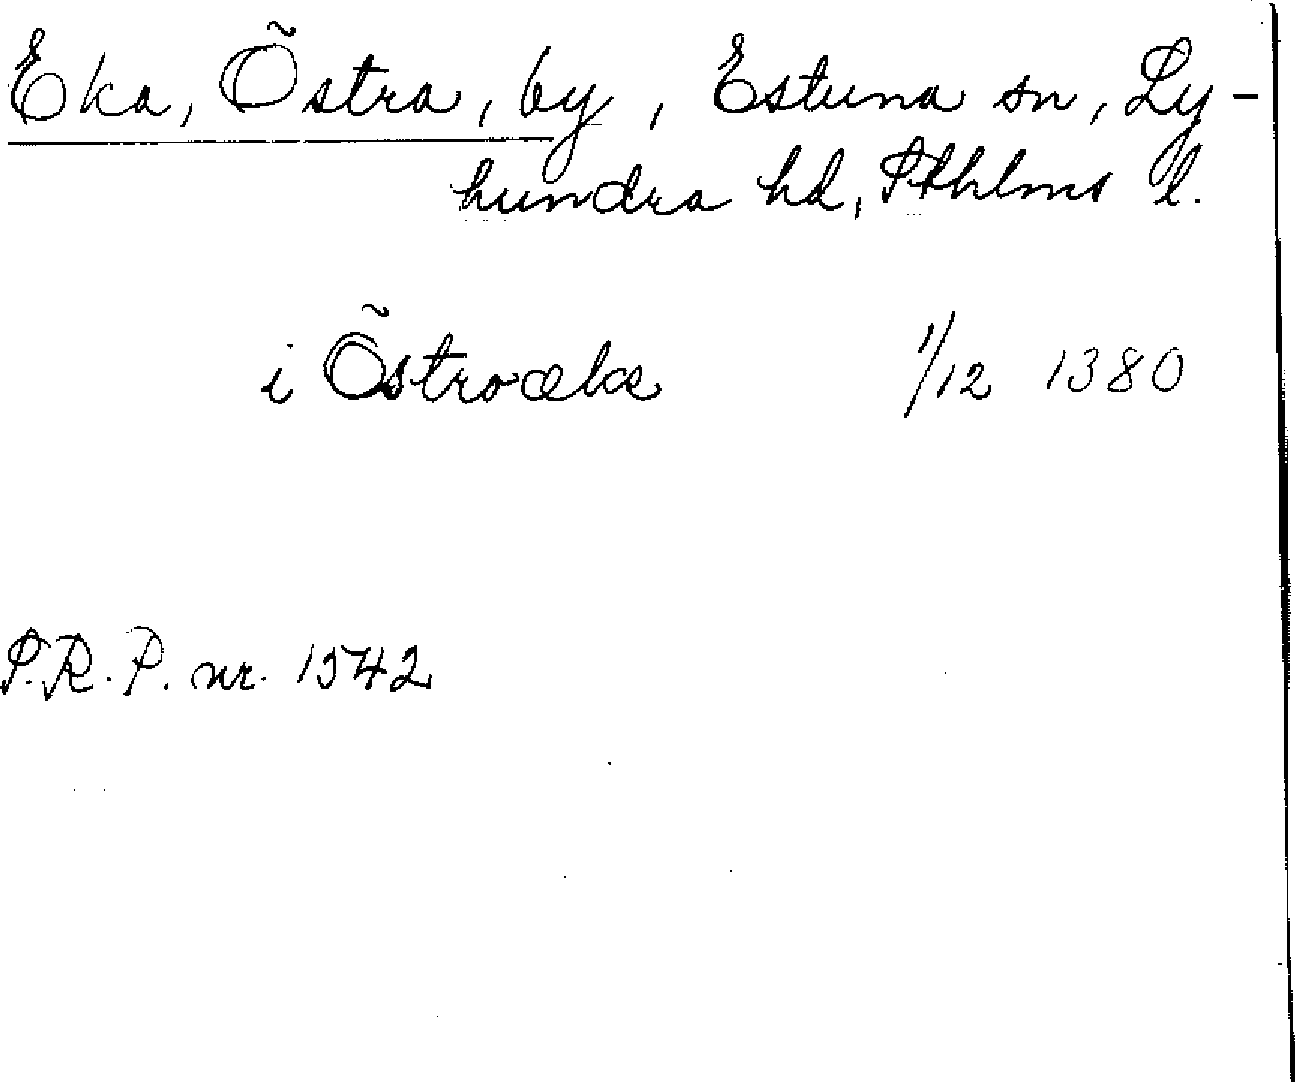 Eka, Östra, by, Estuna sn, Ly-
hundra hd, Sthlms l.
i Östroæka 1/12 1380
S.R.P. nr. 1542